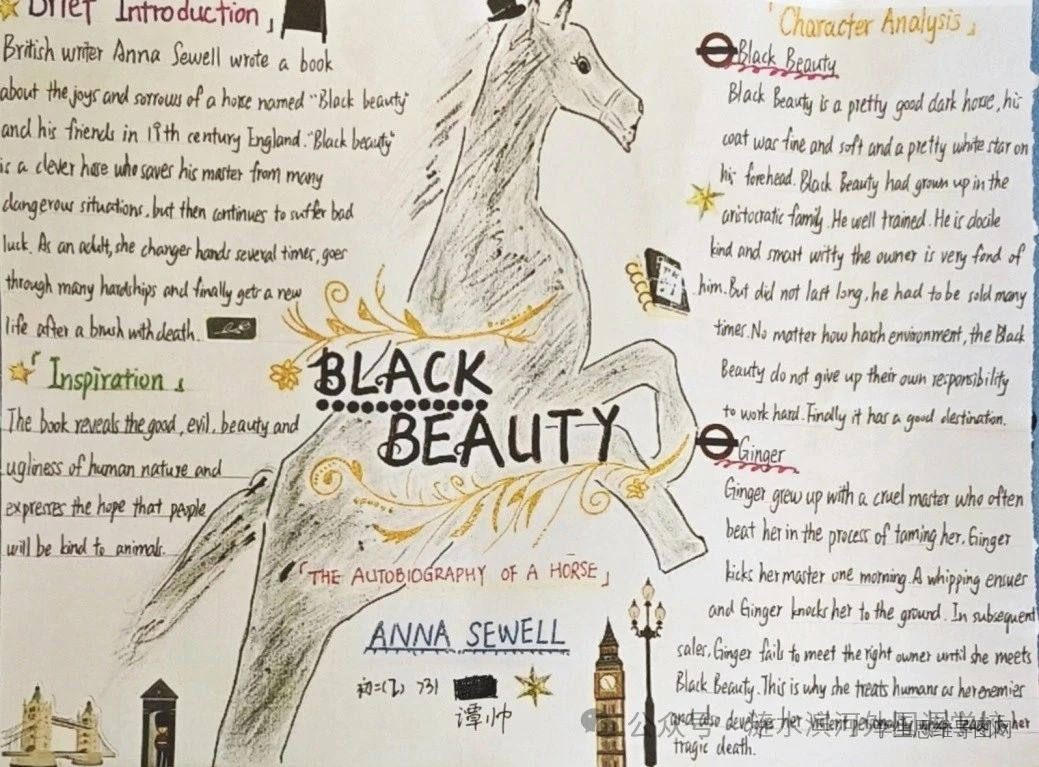 Brief Introduction」
British writer Anna Sewell wrote a book
about the joys and sorrows of a horse named "Black beauty"
and his friends in 19th century England. "Black beauty"
is a clever horse who saves his master from many
dangerous situations, but then continues to suffer bad
luck. As an adult, she changer hands several times, goes
through many hardships and finally gets a new
life after a brush with death.
「Inspiration」
The book reveals the good, evil, beauty and
ugliness of human nature and
expresses the hope that people
will be kind to animals.
BLACK
BEAUTY
「THE AUTOBIOGRAPHY OF A HORSE」
ANNA SEWELL
初二(7) 731
谭帅
「Character Analysis」
Black Beauty
Black Beauty is a pretty good dark horse, his
coat was fine and soft and a pretty white star on
his forehead. Black Beauty had grown up in the
aristocratic family. He well trained. He is docile
kind and smart witty the owner is very fond of
him. But did not last long, he had to be sold many
times. No matter how harsh environment, the Black
Beauty do not give up their own responsibility
to work hard. Finally it has a good destination.
Ginger
Ginger grew up with a cruel master who often
beat her in the process of taming her. Ginger
kicks her master one morning. A whipping ensues
and Ginger knocks her to the ground. In subsequent
sales, Ginger fails to meet the right owner until she meets
Black Beauty. This is why she treats humans as her enemies
and also develops her violent personality to her
tragic death.
公众号 涟水滨河外国语学校
学生思维导图网